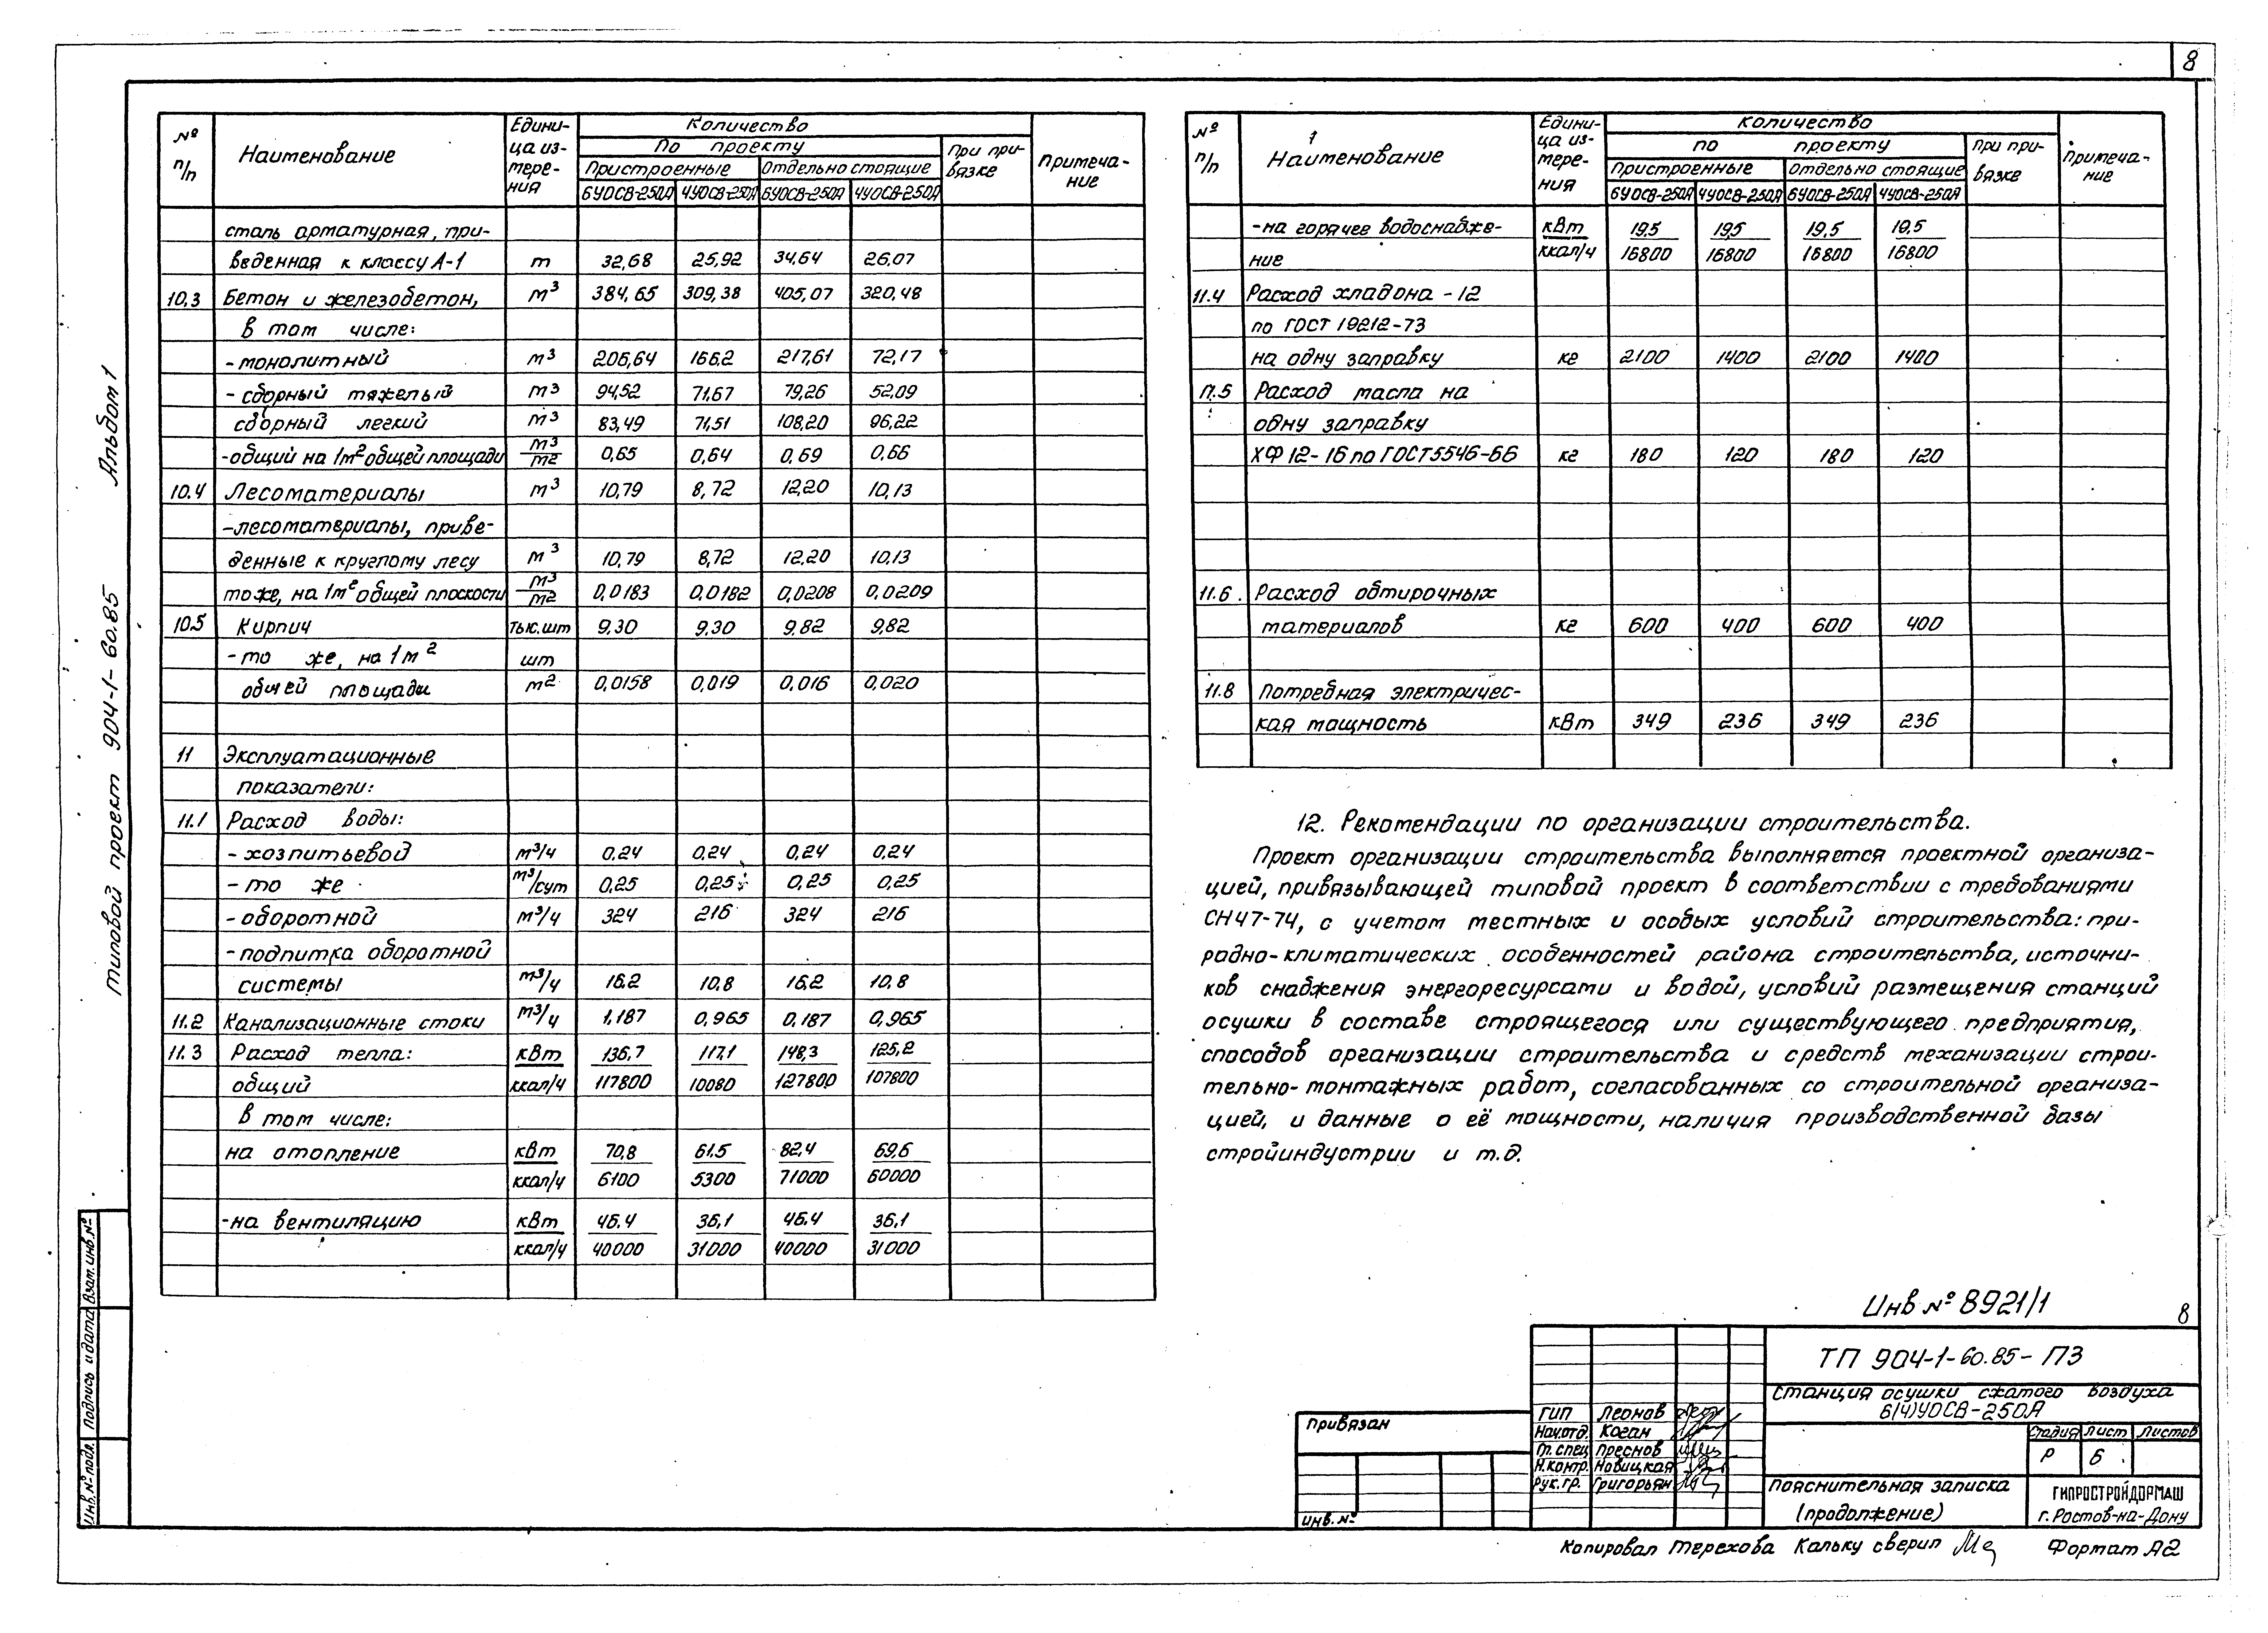 8
№ п/п | Наименование | Едини-ца из-мере-ния | Количество | Примеча-ние
По проекту | При при-вязке
Пристроенные | Отдельно стоящие
6УОСВ-250А | 4УОСВ-250А | 6УОСВ-250А | 4УОСВ-250А
сталь арматурная, при-
веденная к классу А-1 | т | 32,68 | 25,92 | 34,64 | 26,07
10,3 | Бетон и железобетон, | м³ | 384,65 | 309,38 | 405,07 | 320,48
в том числе:
- монолитный | м³ | 206,64 | 166,2 | 217,61 | 72,17
- сборный тяжелый | м³ | 94,52 | 71,67 | 79,26 | 52,09
сборный легкий | м³ | 83,49 | 71,51 | 108,20 | 96,22
- общий на 1м² общей площади | м³/м² | 0,65 | 0,64 | 0,69 | 0,66
10.4 | Лесоматериалы | м³ | 10,79 | 8,72 | 12,20 | 10,13
- лесоматериалы, приве-
денные к круглому лесу | м³ | 10,79 | 8,72 | 12,20 | 10,13
тоже, на 1м² общей плоскости | м³/м² | 0,0183 | 0,0182 | 0,0208 | 0,0209
10.5 | Кирпич | тыс.шт | 9,30 | 9,30 | 9,82 | 9,82
- то же, на 1м² | шт
общей площади | м² | 0,0158 | 0,019 | 0,016 | 0,020
11 | Эксплуатационные
показатели:
11.1 | Расход воды:
- хозпитьевой | м³/ч | 0,24 | 0,24 | 0,24 | 0,24
- то же | м³/сут | 0,25 | 0,25 | 0,25 | 0,25
- оборотной | м³/ч | 324 | 216 | 324 | 216
- подпитка оборотной
системы | м³/ч | 16,2 | 10,8 | 16,2 | 10,8
11.2 | Канализационные стоки | м³/ч | 1,187 | 0,965 | 0,187 | 0,965
11.3 | Расход тепла: | кВт | 136,7 | 117,1 | 148,3 | 125,2
общий | ккал/ч | 117800 | 10080 | 127800 | 107800
в том числе:
на отопление | кВт | 70,8 | 61,5 | 82,4 | 69,6
ккал/ч | 6100 | 5300 | 71000 | 60000
- на вентиляцию | кВт | 46.4 | 36,1 | 46.4 | 36,1
ккал/ч | 40000 | 31000 | 40000 | 31000
№ п/п | Наименование | Едини-ца из-мере-ния | Количество | Примеча-ние
по проекту | при при-вязке
Пристроенные | Отдельно стоящие
6УОСВ-250А | 4УОСВ-250А | 6УОСВ-250А | 4УОСВ-250А
- на горячее водоснабже- | кВт | 19,5 | 19,5 | 19,5 | 19,5
ние | ккал/ч | 16800 | 16800 | 16800 | 16800
11.4 | Расход хладона - 12
по ГОСТ 19212-73
на одну заправку | кг | 2100 | 1400 | 2100 | 1400
11.5 | Расход масла на
одну заправку
ХФ 12-16 по ГОСТ 5546-66 | кг | 180 | 120 | 180 | 120
11.6. | Расход обтирочных
материалов | кг | 600 | 400 | 600 | 400
11.8 | Потребная электричес-
кая мощность | кВт | 349 | 236 | 349 | 236
12. Рекомендации по организации строительства.
Проект организации строительства выполняется проектной организа-
цией, привязывающей типовой проект в соответствии с требованиями
СН47-74, с учетом местных и особых условий строительства: при-
родно-климатических особенностей района строительства, источни-
ков снабжения энергоресурсами и водой, условий размещения станций
осушки в составе строящегося или существующего предприятия,
способов организации строительства и средств механизации строи-
тельно-монтажных работ, согласованных со строительной организа-
цией, и данные о её мощности, наличия производственной базы
стройиндустрии и т.д.
Инв № 8921/1
8
ТП 904-1-60.85-ПЗ
Станция осушки сжатого воздуха
6(4)УОСВ-250А
Привязан
инв. №
ГИП | Леонов
Нач.отд. | Коган
Гл. спец | Преснов
Н.контр. | Новицкая
Рук. гр. | Григорьян
Стадия | Лист | Листов
Р | 6
Пояснительная записка
(продолжение)
ГИПРОСТРОЙДОРМАШ
г. Ростов-на-Дону
Копировал Терехова Кальку сверил
Формат А2
Типовой проект 904-1-60.85 Альбом 1
Инв. № подл. | Подпись и дата | Взам. инв. №